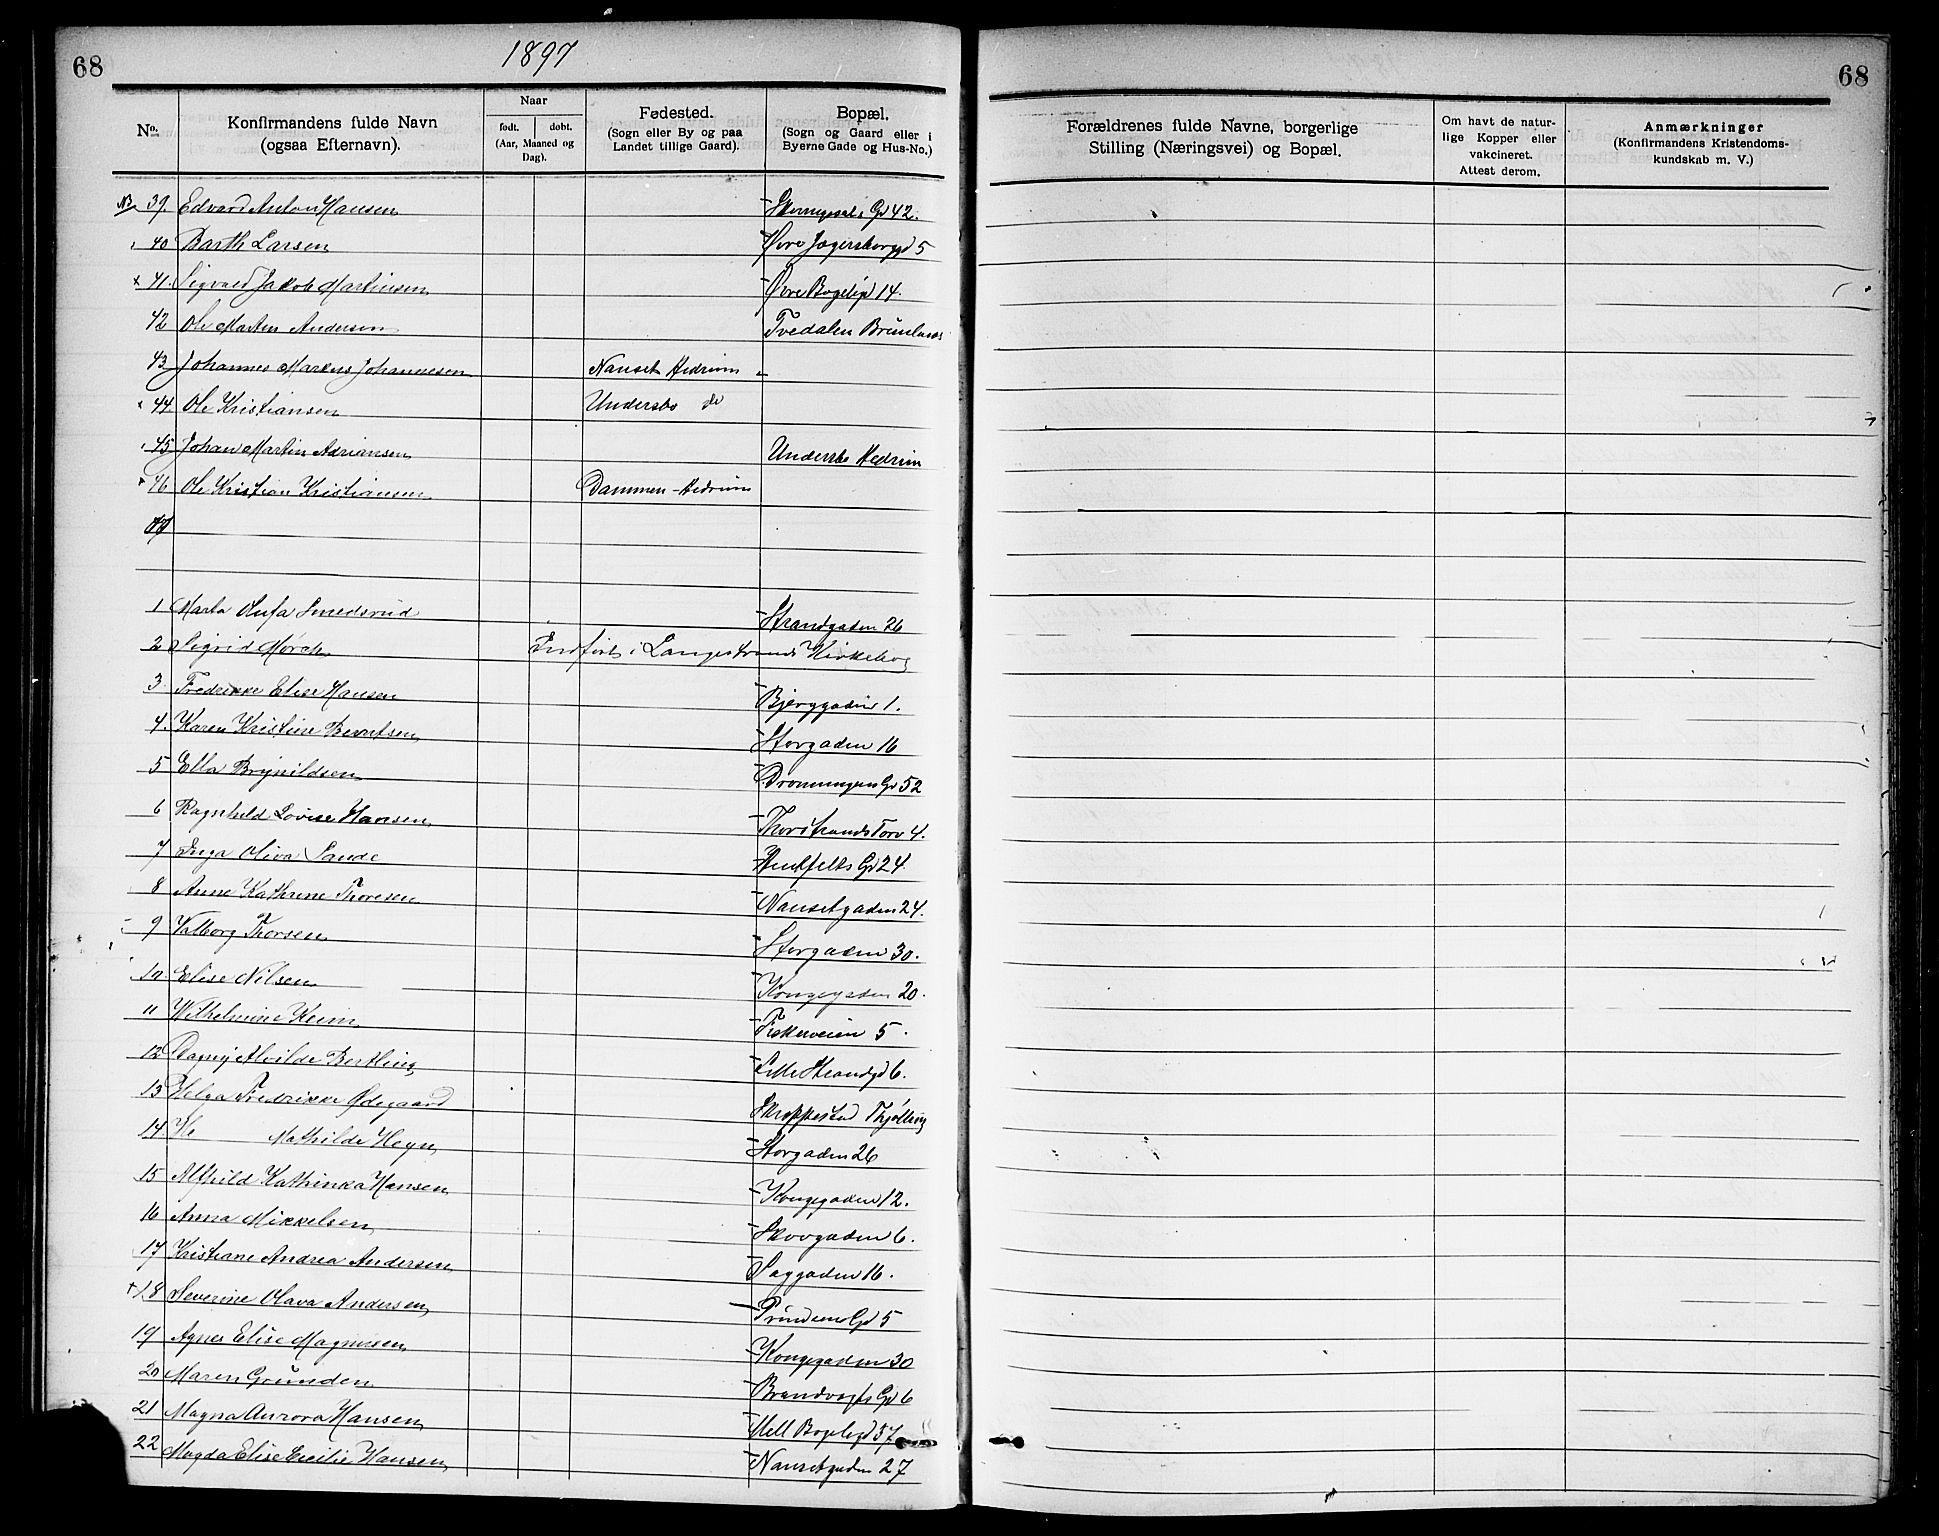 68
1897
No. Konfirmandens fulde Navn (ogsaa Efternavn). Naar født. døbt. (Aar, Maaned og Dag). Fødested. (Sogn eller By og paa Landet tillige Gaard). Bopæl. (Sogn og Gaard eller i Byerne Gade og Hus-No.)
39. Edvard Anton Hansen Gd 42.
40 Barth Larsen Øvre Jegersborggd 5
x 41. Sigvald Jakob Martinsen Øvre Bøgeligd 14.
42 Ole Martin Andersen Tvedalen Brunlanes
43. Johannes Markus Johannesen Nanset Hedrum
x 44. Ole Kristiansen Undersbo do
45 Johan Martin Adriansen Undersbo Hedrum
46 Ole Kristian Kristiansen Dammen - Hedrum
47
1 Marta Olufa Smedsrud Strandgaden 26
2 Sigrid Mørch Indført i Langestrands Kirkebog
3. Fredrikke Elise Hansen Bjerggaden 1.
4. Karen Kristine Berntsen Storgaden 16
5 Ella Brynildsen Dronningens Gd 52
6 Ragnhild Lovise Hansen Thorstrands Torv 4.
7 Inga Oliva Sande Huitfelts Gd 24.
8 Anne Kathrine Thoresen Nansetgaden 24.
9 Valborg Thorsen Storgaden 30.
10. Elise Nilsen Kongegaden 20.
11 Wilhelmine Keim Fiskerveien 5.
12 Dagny Alvilde Bertling Lille Strandgd 6.
13 Helga Fredrikke Ødegaard Thjølling
14 He Mathilde Heyn Storgaden 26
15 Alfhild Kathinka Hansen Kongegaden 12.
16 Anna Mikkelsen Skovgaden 6.
17 Kristiane Andrea Andersen Saggaden 16.
+ 18 Severine Olava Andersen Prindsens Gd 5
19 Agnes Elise Magnusen Kongegaden 30
20 Maren Grunden Brandvagts Gd 6
21 Magna Aurora Hansen Mell Bøgeligd 57
22 Magda Elise Cecilie Hansen Nansetgaden 27
68
Forældrenes fulde Navne, borgerlige Stilling (Næringsvei) og Bopæl. Om havt de naturlige Kopper eller vakcineret. Attest derom. Anmærkninger (Konfirmandens Kristendomskundskab m. V.)